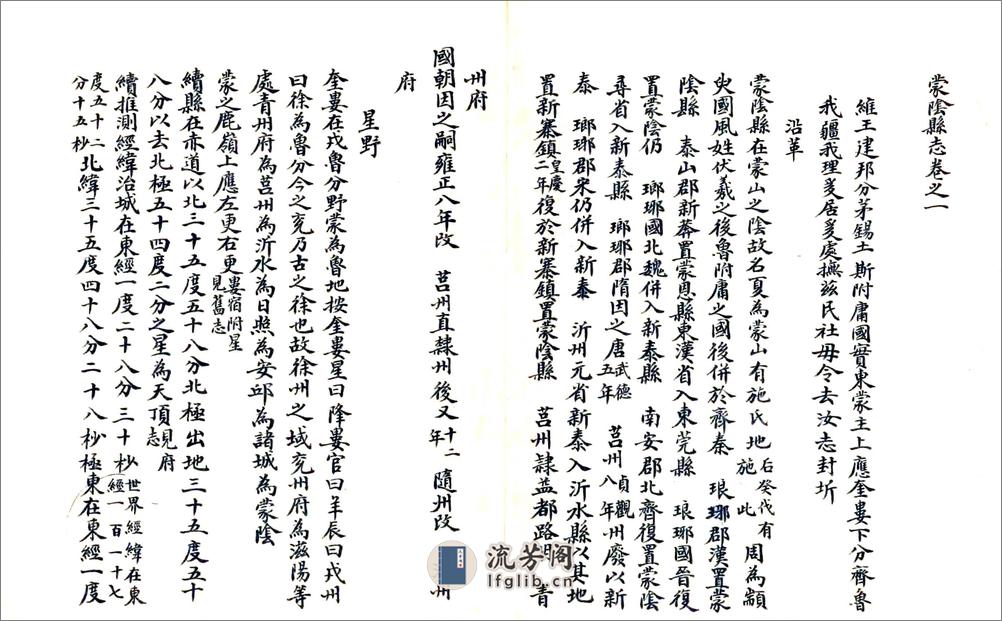 蒙陰縣志卷之一
維王建邦分茅錫土斯附庸國實東蒙主上應奎婁下分齊魯
我疆我理爰居爰處撫茲民社毋令去汝志封圻
沿革
蒙陰縣在蒙山之陰故名夏為蒙山有施氏地 后癸伐有施此 周為顓
臾國風姓伏羲之後魯附庸之國後併於齊秦 琅琊郡漢置蒙
陰縣 泰山郡新莽置蒙恩縣東漢省入東莞縣 琅琊國晉復
置蒙陰仍 瑯琊國北魏併入新泰縣 南安郡北齊復置蒙陰
尋省入新泰縣 瑯琊郡隋因之唐武德五年 莒州貞觀八年州廢以新
泰 瑯琊郡宋仍併入新泰 沂州元省新泰入沂水縣以其地
置新寨鎮皇慶二年復於新寨鎮置蒙陰縣 莒州隸益都路明 青
州府
國朝因之嗣雍正八年改 莒州直隸州後又十二年隨州改 州
府
星野
奎婁在戌魯分野蒙為魯地按奎婁星曰降婁官曰羊辰曰戌州
曰徐為魯分今之兗乃古之徐也故徐州之域兗州府為滋陽等
處青州府為莒州為沂水為日照為安邱為諸城為蒙陰
蒙之鹿嶺上應左更右更婁宿附星見舊志
續縣在赤道以北三十五度五十八分北極出地三十五度五十
八分以去北極五十四度二分之星為天頂見府志
續推測經緯治城在東經一度二十八分三十秒世界經緯在東經一百一十七
度五十二分十五秒北緯三十五度四十八分二十八秒極東在東經一度
流芳閣
lfglib.cn